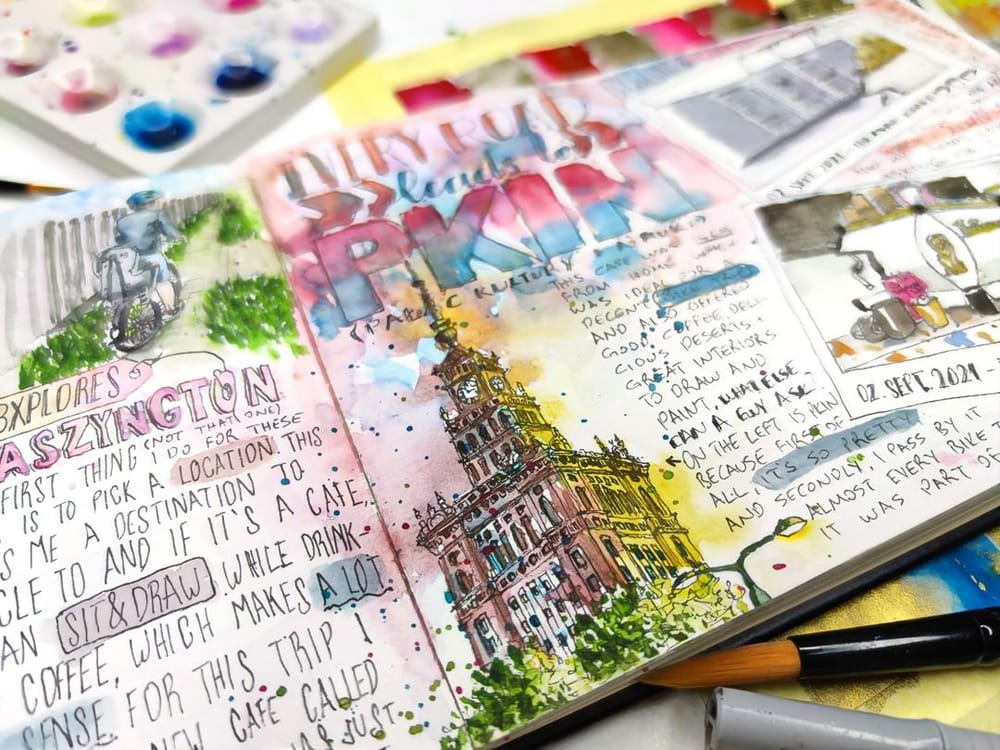 EXPLORES
WASZYNGTON
(NOT THAT ONE)
FIRST THING I DO FOR THESE
IS TO PICK A LOCATION. THIS
ME A DESTINATION TO
CLE TO AND IF IT'S A CAFE,
AN SIT & DRAW. WHILE DRINK-
COFFEE, WHICH MAKES A LOT
SENSE. FOR THIS TRIP I
NEW CAFE CALLED
JUST
EVERY ROAD
leads to
PKIN
KULTURY
THIS CAFE WAS
FROM HOME WHICH
WAS IDEAL FOR A
DECENT BIKE RIDE
AND ALSO OFFERED
GOOD COFFEE, DELI-
CIOUS DESERTS +
GREAT INTERIORS
TO DRAW AND
PAINT. WHAT ELSE
CAN A GUY ASK
ON THE LEFT IS PKIN
BECAUSE FIRST OF
ALL, IT'S SO PRETTY
AND SECONDLY, I PASS BY IT
ALMOST EVERY BIKE
IT WAS PART OF
02 SEPT 2021 -
02. SEPT. 2021 -